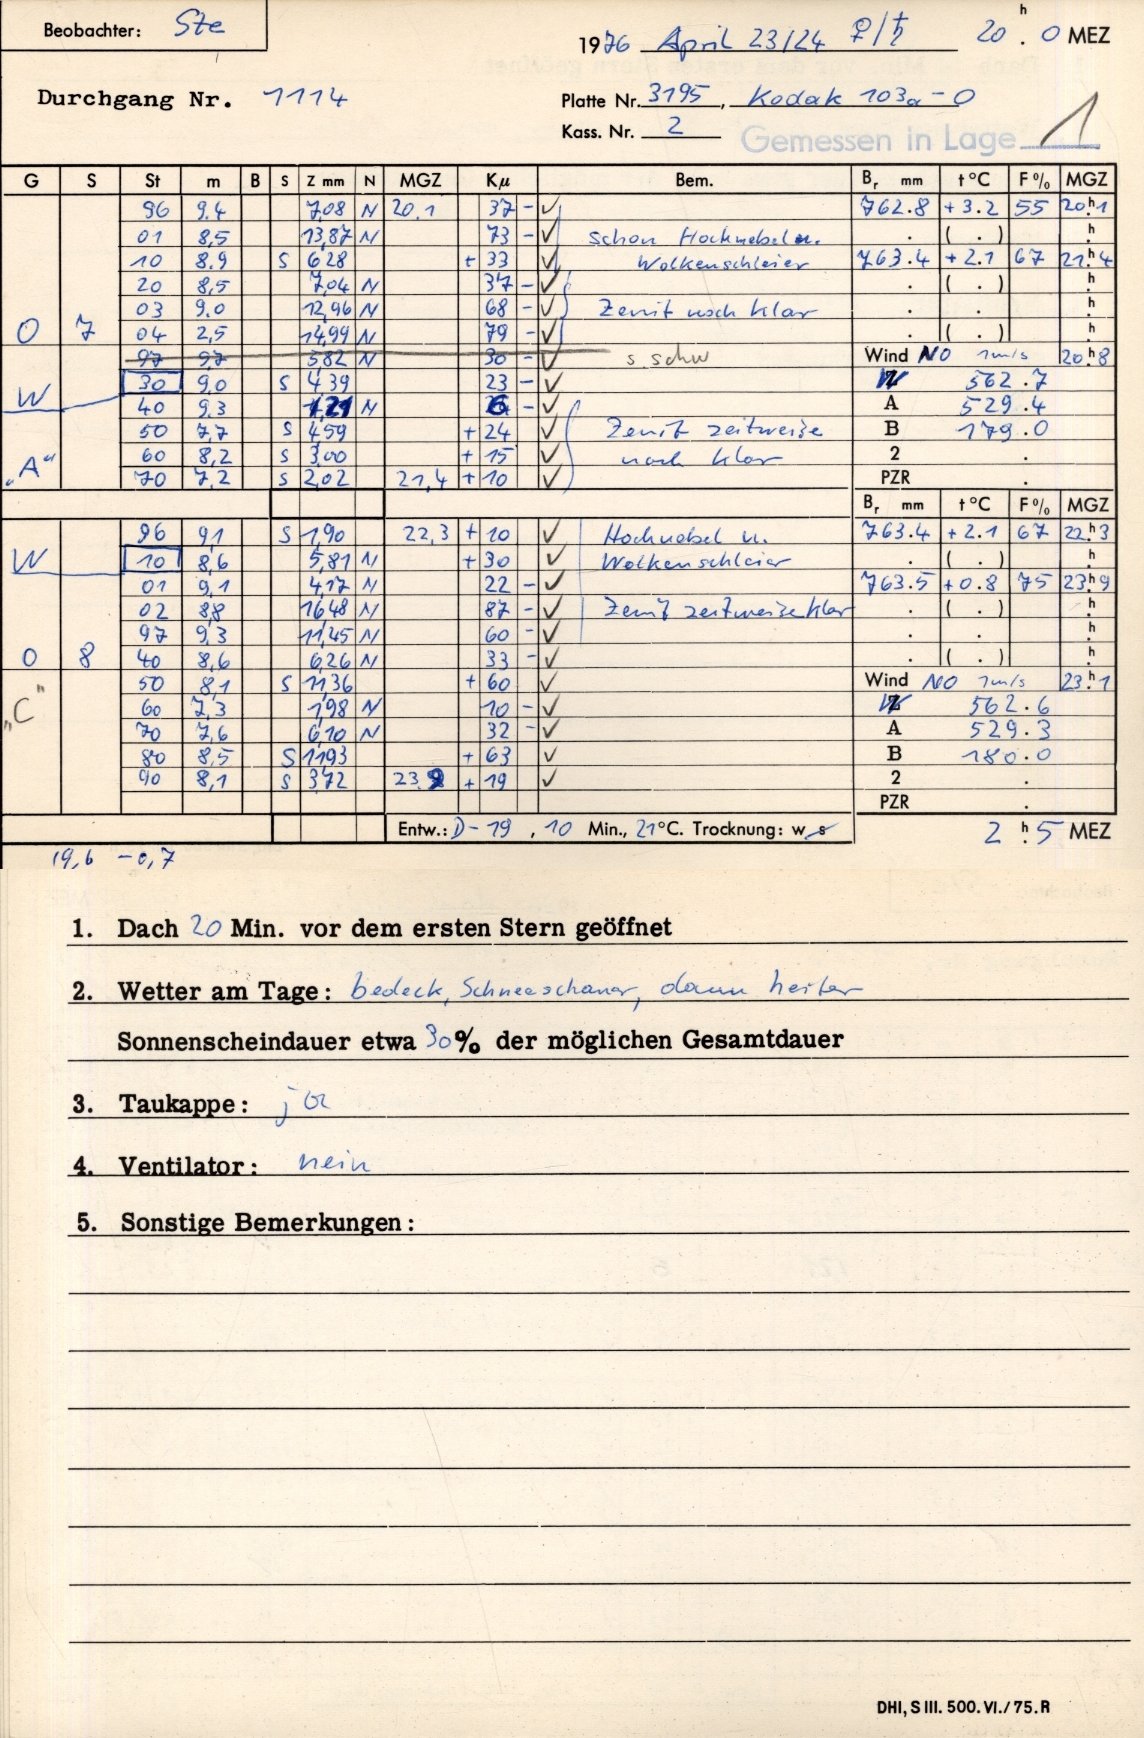 Beobachter: Ste
1976 April 23/24 ♀/♄ 20 h . 0 MEZ
Durchgang Nr. 1114
Platte Nr. 3195, Kodak 103a-O
Kass. Nr. 2
Gemessen in Lage 1
G S St m B S Z mm N MGZ Kµ Bem. Br mm t °C F % MGZ
96 9.4 7,08 N 20,1 37 - ✓ 762.8 +3.2 55 20 h 1
01 8,5 13,87 N 73 - ✓ schon Hochnebel u. . ( . ) h .
10 8.9 S 6,28 + 33 ✓ Wolkenschleier 763.4 +2.1 67 21 h 4
20 8,5 7,04 N 37 - ✓ . ( . ) h .
03 9.0 12,96 N 68 - ✓ Zenit noch klar . . h .
O 7 04 2,5 14,99 N 79 - ✓ . ( . ) h .
97 9,7 5,82 N 30 - ✓ s. schw Wind NO 1 m/s 20 h 8
W 30 9,0 S 4,39 23 - ✓ 562.7
40 9,3 1,21 N 6 - ✓ A 529.4
50 7,7 S 4,59 + 24 ✓ Zenit zeitweise B 179.0
„A“ 60 8,2 S 3,00 + 15 ✓ noch klar 2 .
70 7,2 S 2,02 21,4 + 10 ✓ PZR .
Br mm t °C F % MGZ
96 9,1 S 1,90 22,3 + 10 ✓ Hochnebel u. 763.4 +2.1 67 22 h 3
W 10 8,6 5,81 N + 30 ✓ Wolkenschleier . ( . ) h .
01 9,1 4,17 N 22 - ✓ 763.5 +0.8 75 23 h 9
02 8,8 16,48 N 87 - ✓ Zenit zeitweise klar . ( . ) h .
97 9,3 11,45 N 60 - ✓ . . h .
O 8 40 8,6 6,26 N 33 - ✓ . ( . ) h .
50 8,1 S 11,36 + 60 ✓ Wind NO 1 m/s 23 h 1
„C“ 60 7,3 1,98 N 10 - ✓ 562.6
70 7,6 6,10 N 32 - ✓ A 529.3
80 8,5 S 11,93 + 63 ✓ B 180.0
90 8,1 S 3,72 23,9 + 19 ✓ 2 .
PZR .
Entw.: D-19, 10 Min., 21°C. Trocknung: w s 2 h . 5 MEZ
19,6 -0,7
1. Dach 20 Min. vor dem ersten Stern geöffnet
2. Wetter am Tage: bedeck, Schneeschauer, dann heiter
Sonnenscheindauer etwa 30% der möglichen Gesamtdauer
3. Taukappe: ja
4. Ventilator: nein
5. Sonstige Bemerkungen:
DHI, S III. 500. VI./75. R